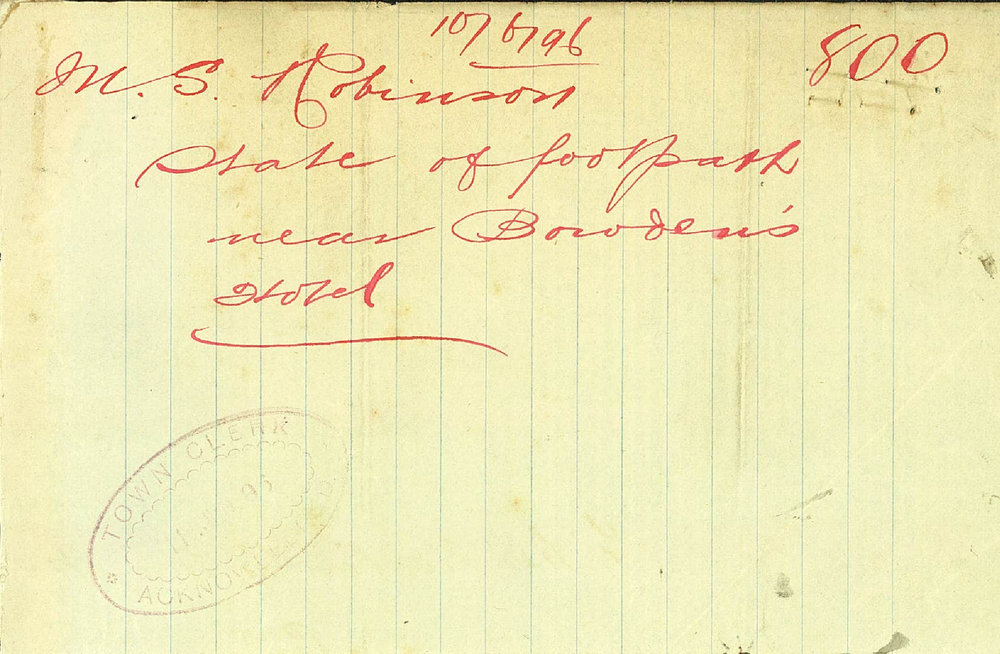 10/6/96
800
M. S. Robinson
State of footpath
near Bowden's
Hotel
TOWN CLERK
ACKNOWLEDGED